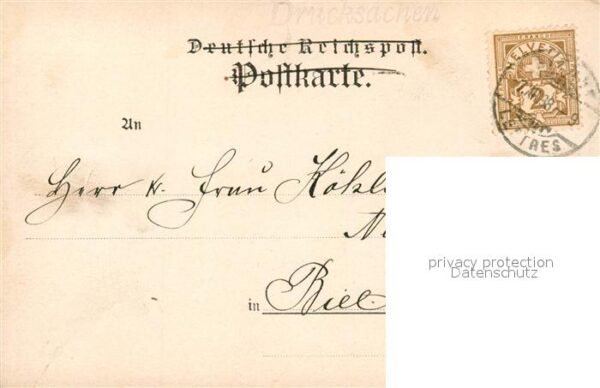 Drucksachen
Deutsche Reichspost.
Postkarte.
FRANCO
HELVETIA
TRES
An
Herr u. Frau
privacy protection
Datenschutz
in Biel.